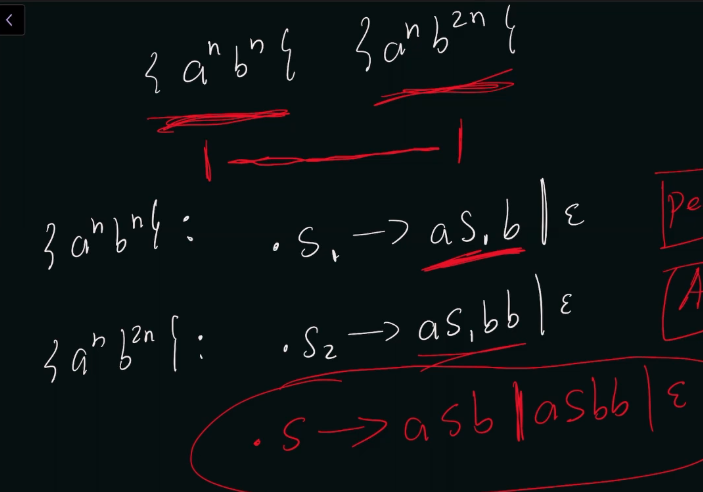 { aⁿ bⁿ { { aⁿ b²ⁿ {
{ aⁿ bⁿ { : . S₁ -> a S₁ b | ε
Pe
{ aⁿ b²ⁿ { : . S₂ -> a S₁ bb | ε
A
. S -> a s b | a s bb | ε